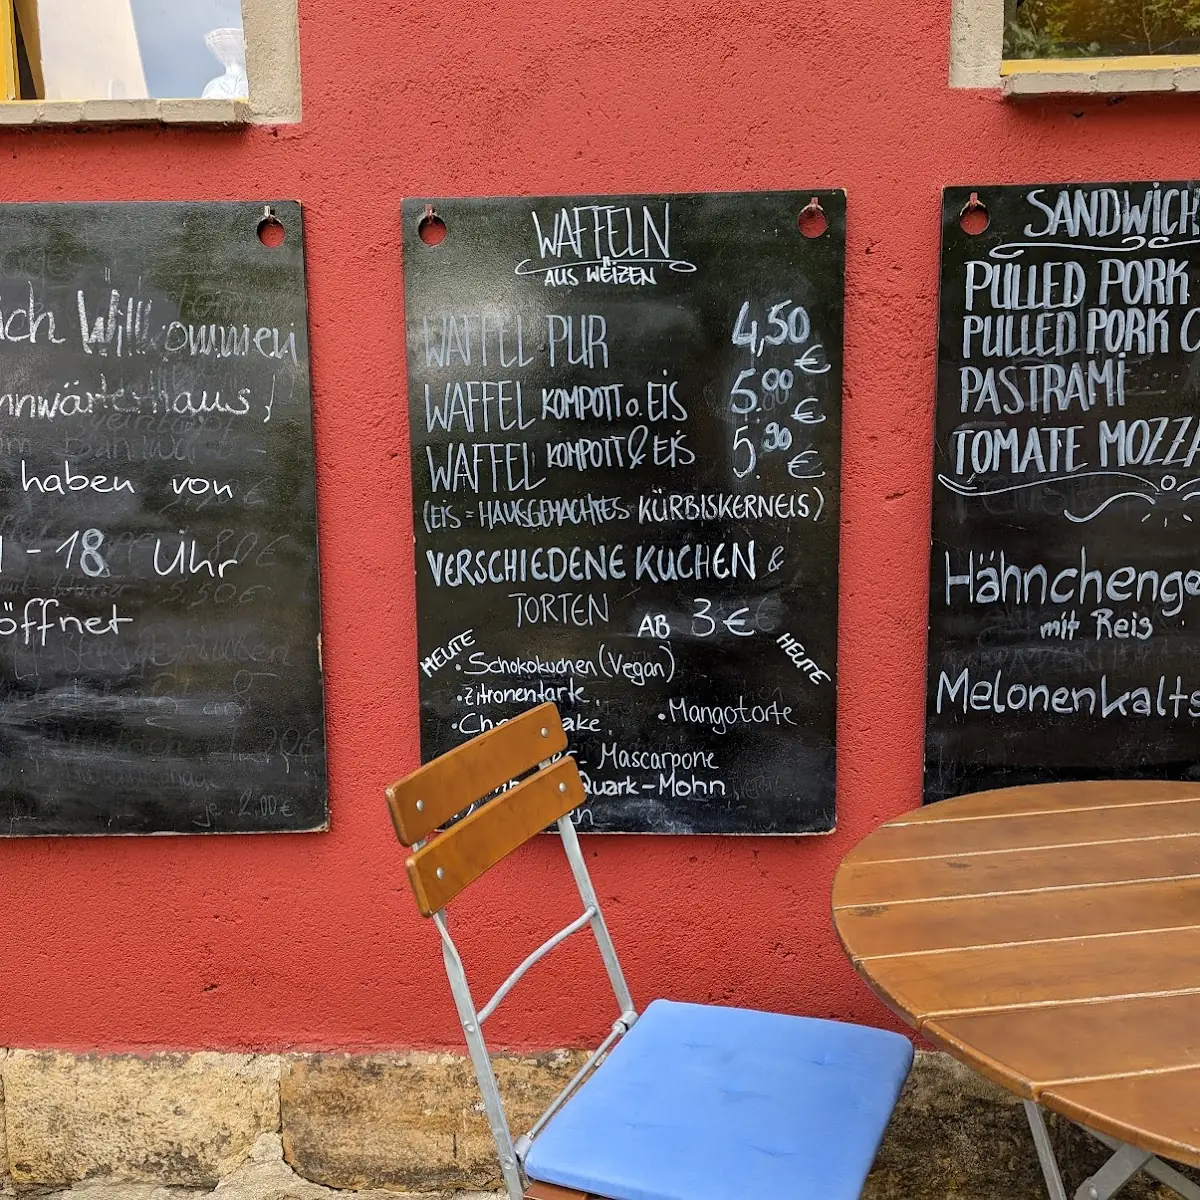 ich Willkommen
nnwärterhaus!
haben von
- 18 Uhr
öffnet
je 2,00€
WAFFELN
AUS WEIZEN
WAFFEL PUR 4,50 €
WAFFEL KOMPOTT o. EIS 5.00 €
WAFFEL KOMPOTT & EIS 5.90 €
(EIS = HAUSGEMACHTES KÜRBISKERNEIS)
VERSCHIEDENE KUCHEN &
TORTEN AB 3€
HEUTE HEUTE
• Schokokuchen (Vegan)
• Zitronentarte
• Ch ake • Mangotorte
- Mascarpone
Quark-Mohn
en
SANDWICH
PULLED PORK
PULLED PORK C
PASTRAMI
TOMATE MOZZA
Hähnchenge
mit Reis
Melonenkalts